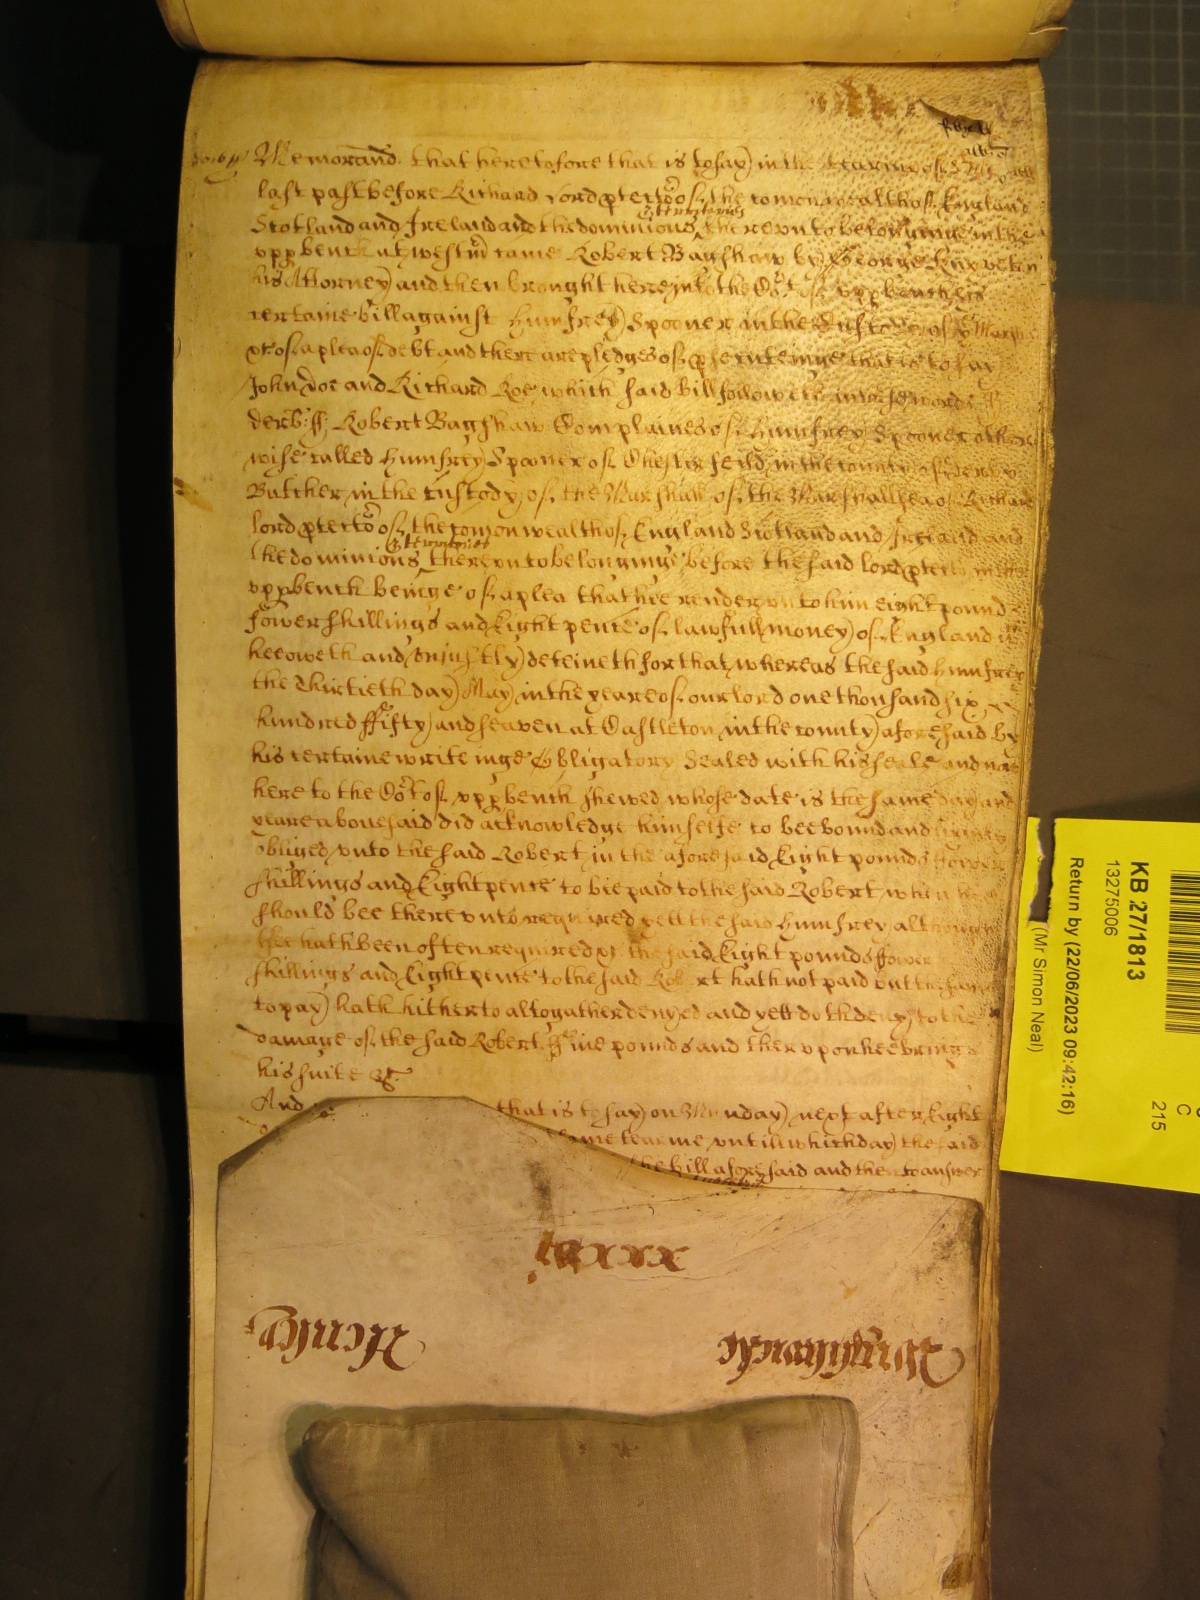 Derb ss
Memorand. that heretofore that is to say in the tearme of St
last past before Richard Lord pterto of the comonwealth of England
& territories
Scotland and Ireland and the dominions thereunto belonginge in the
vpp bench at westm came Robert Bagshaw by George
his Attorney and then brought here into the Cort of vpp bench his
certaine bill against Humfrey Spooner in the Custody of the
of a plea of debt and there are pledges of that is to say
John Doe and Richard Roe which said bill followeth in these words
derb: ss: Robert Bagshaw Complaines of Humfrey Spooner other
wise called Humfrey Spooner of Chesterfeild in the county of derby
Butcher in the custody of the Marshall of the Marshallsea of Richard
lord pterto of the comonwealth of England Scotland and Ireland and
& territories
the dominions thereunto belonginge before the said lord pterto in the
vpp bench beinge of a plea that hee render vnto him eight pound
fower shillings and Eight pence of lawfull money of England
hee oweth and vniustly deteineth for that whereas the said Humfrey
the Thirtieth day May in the yeare of our lord one thousand six
hundred ffifty and seaven at Castleton in the county aforesaid by
his certaine writeinge Obligatory Sealed with his seale and now
here to the Cort of vpp bench shewed whose date is the same day and
yeare abouesaid did acknowledge himselfe to bee bound and
obliged vnto the said Robert in the aforesaid Eight pounds ffower
shillings and Eight pence to bee paid to the said Robert when hee
should bee therevnto required yett the said Humfrey although
hee hath been often required the said Eight pounds ffower
shillings and Eight pence to the said Robert hath not paid but the same
to pay hath hitherto altogather denyed and yett doth deny to the
damage of the said Robert ffiue pounds and thervpon hee brings
his suite &c
And that is to say on Munday next after Eight
same tearme vntill which day the said
the bill aforesaid and then to answer
xxxxj
Henley
KB 27/1813
13275006
Return by (22/06/2023 09:42:16)
(Mr Simon Neal)
C
215